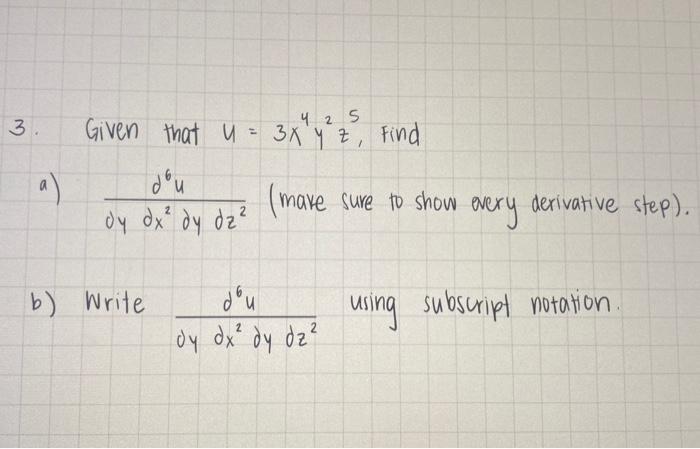 3. Given that u = 3x⁴y²z⁵, Find
a) ∂⁶u / ∂y ∂x² ∂y ∂z² (make sure to show every derivative step).
b) Write ∂⁶u / ∂y ∂x² ∂y ∂z² using subscript notation.